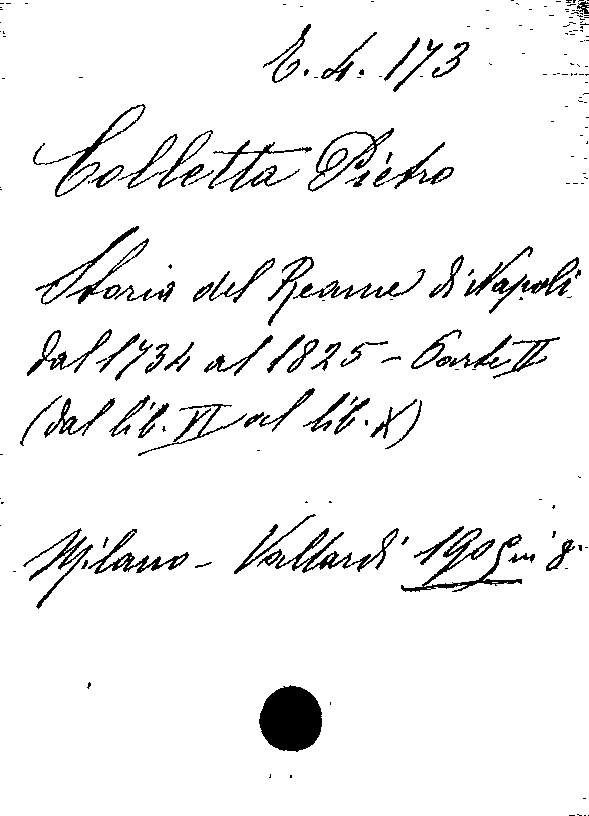 E. 4. 173
Colletta Pietro
Storia del Reame di Napoli
dal 1734 al 1825 - Parte II
(dal lib. VI al lib. X)
Milano - Vallardi 1905 in 8.